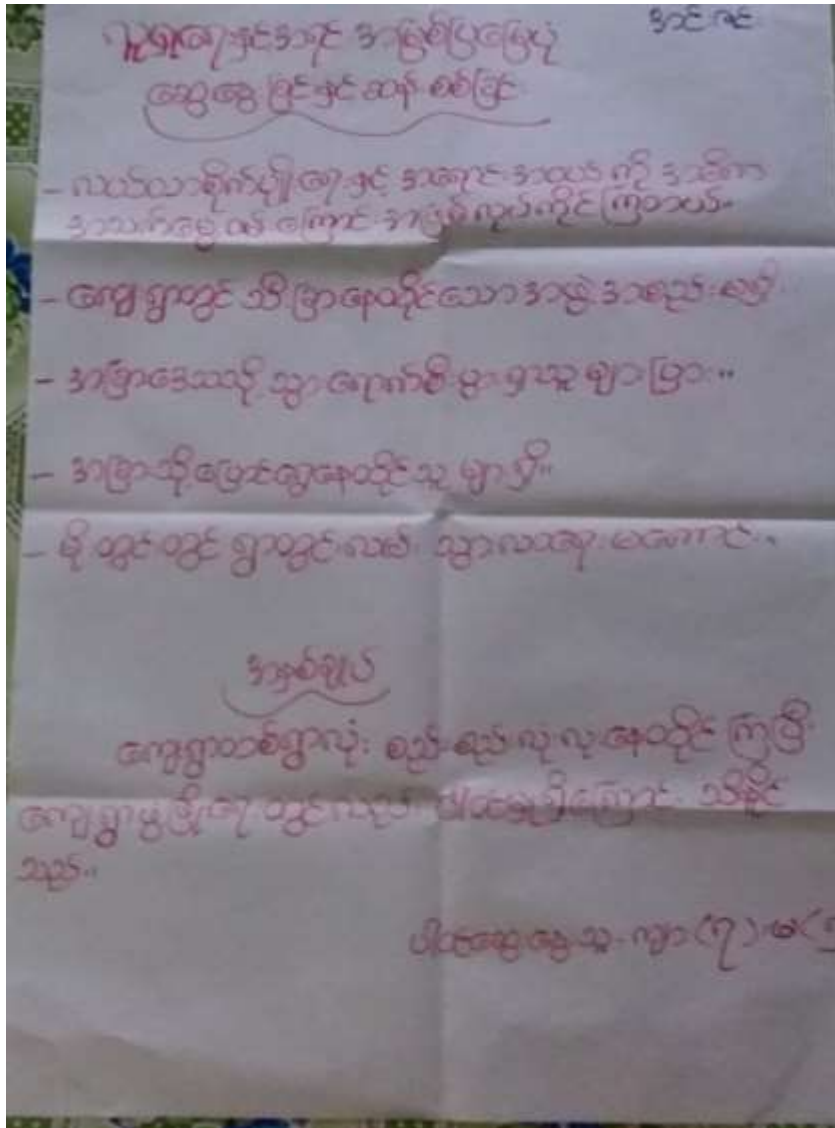 အင်ဇင်း
လူမှုရေးနှင့်အရင်းအမြစ်ပြမြေပုံ
ဆွေးနွေးခြင်းနှင့်ဆန်းစစ်ခြင်း
- လယ်ယာစိုက်ပျိုးရေးနှင့် အရောင်းအဝယ်ကို အဓိက
အသက်မွေးဝမ်းကြောင်းအဖြစ်လုပ်ကိုင်ကြတယ်။
- ကျေးရွာတွင် သီးခြားနေထိုင်သောအဖွဲ့အစည်းမရှိ
- အခြားဒေသသို့ သွားရောက်စီးပွားရှာသူများခြား။
- အခြားသို့ပြောင်းရွှေ့နေထိုင်သူများရှိ။
- မိုးတွင်းတွင် ရွာတွင်းလမ်း သွားလာရေးမကောင်း။
အနှစ်ချုပ်
ကျေးရွာတစ်ရွာလုံး စည်းစည်းလုံးလုံးနေထိုင်ကြပြီး
ကျေးရွာဖွံ့ဖြိုးရေးတွင်လည်း ပါဝင်မှုရှိကြောင်း သိနိုင်
သည်။
ပါဝင်ဆွေးနွေးသူ ကျား(၇) မ(